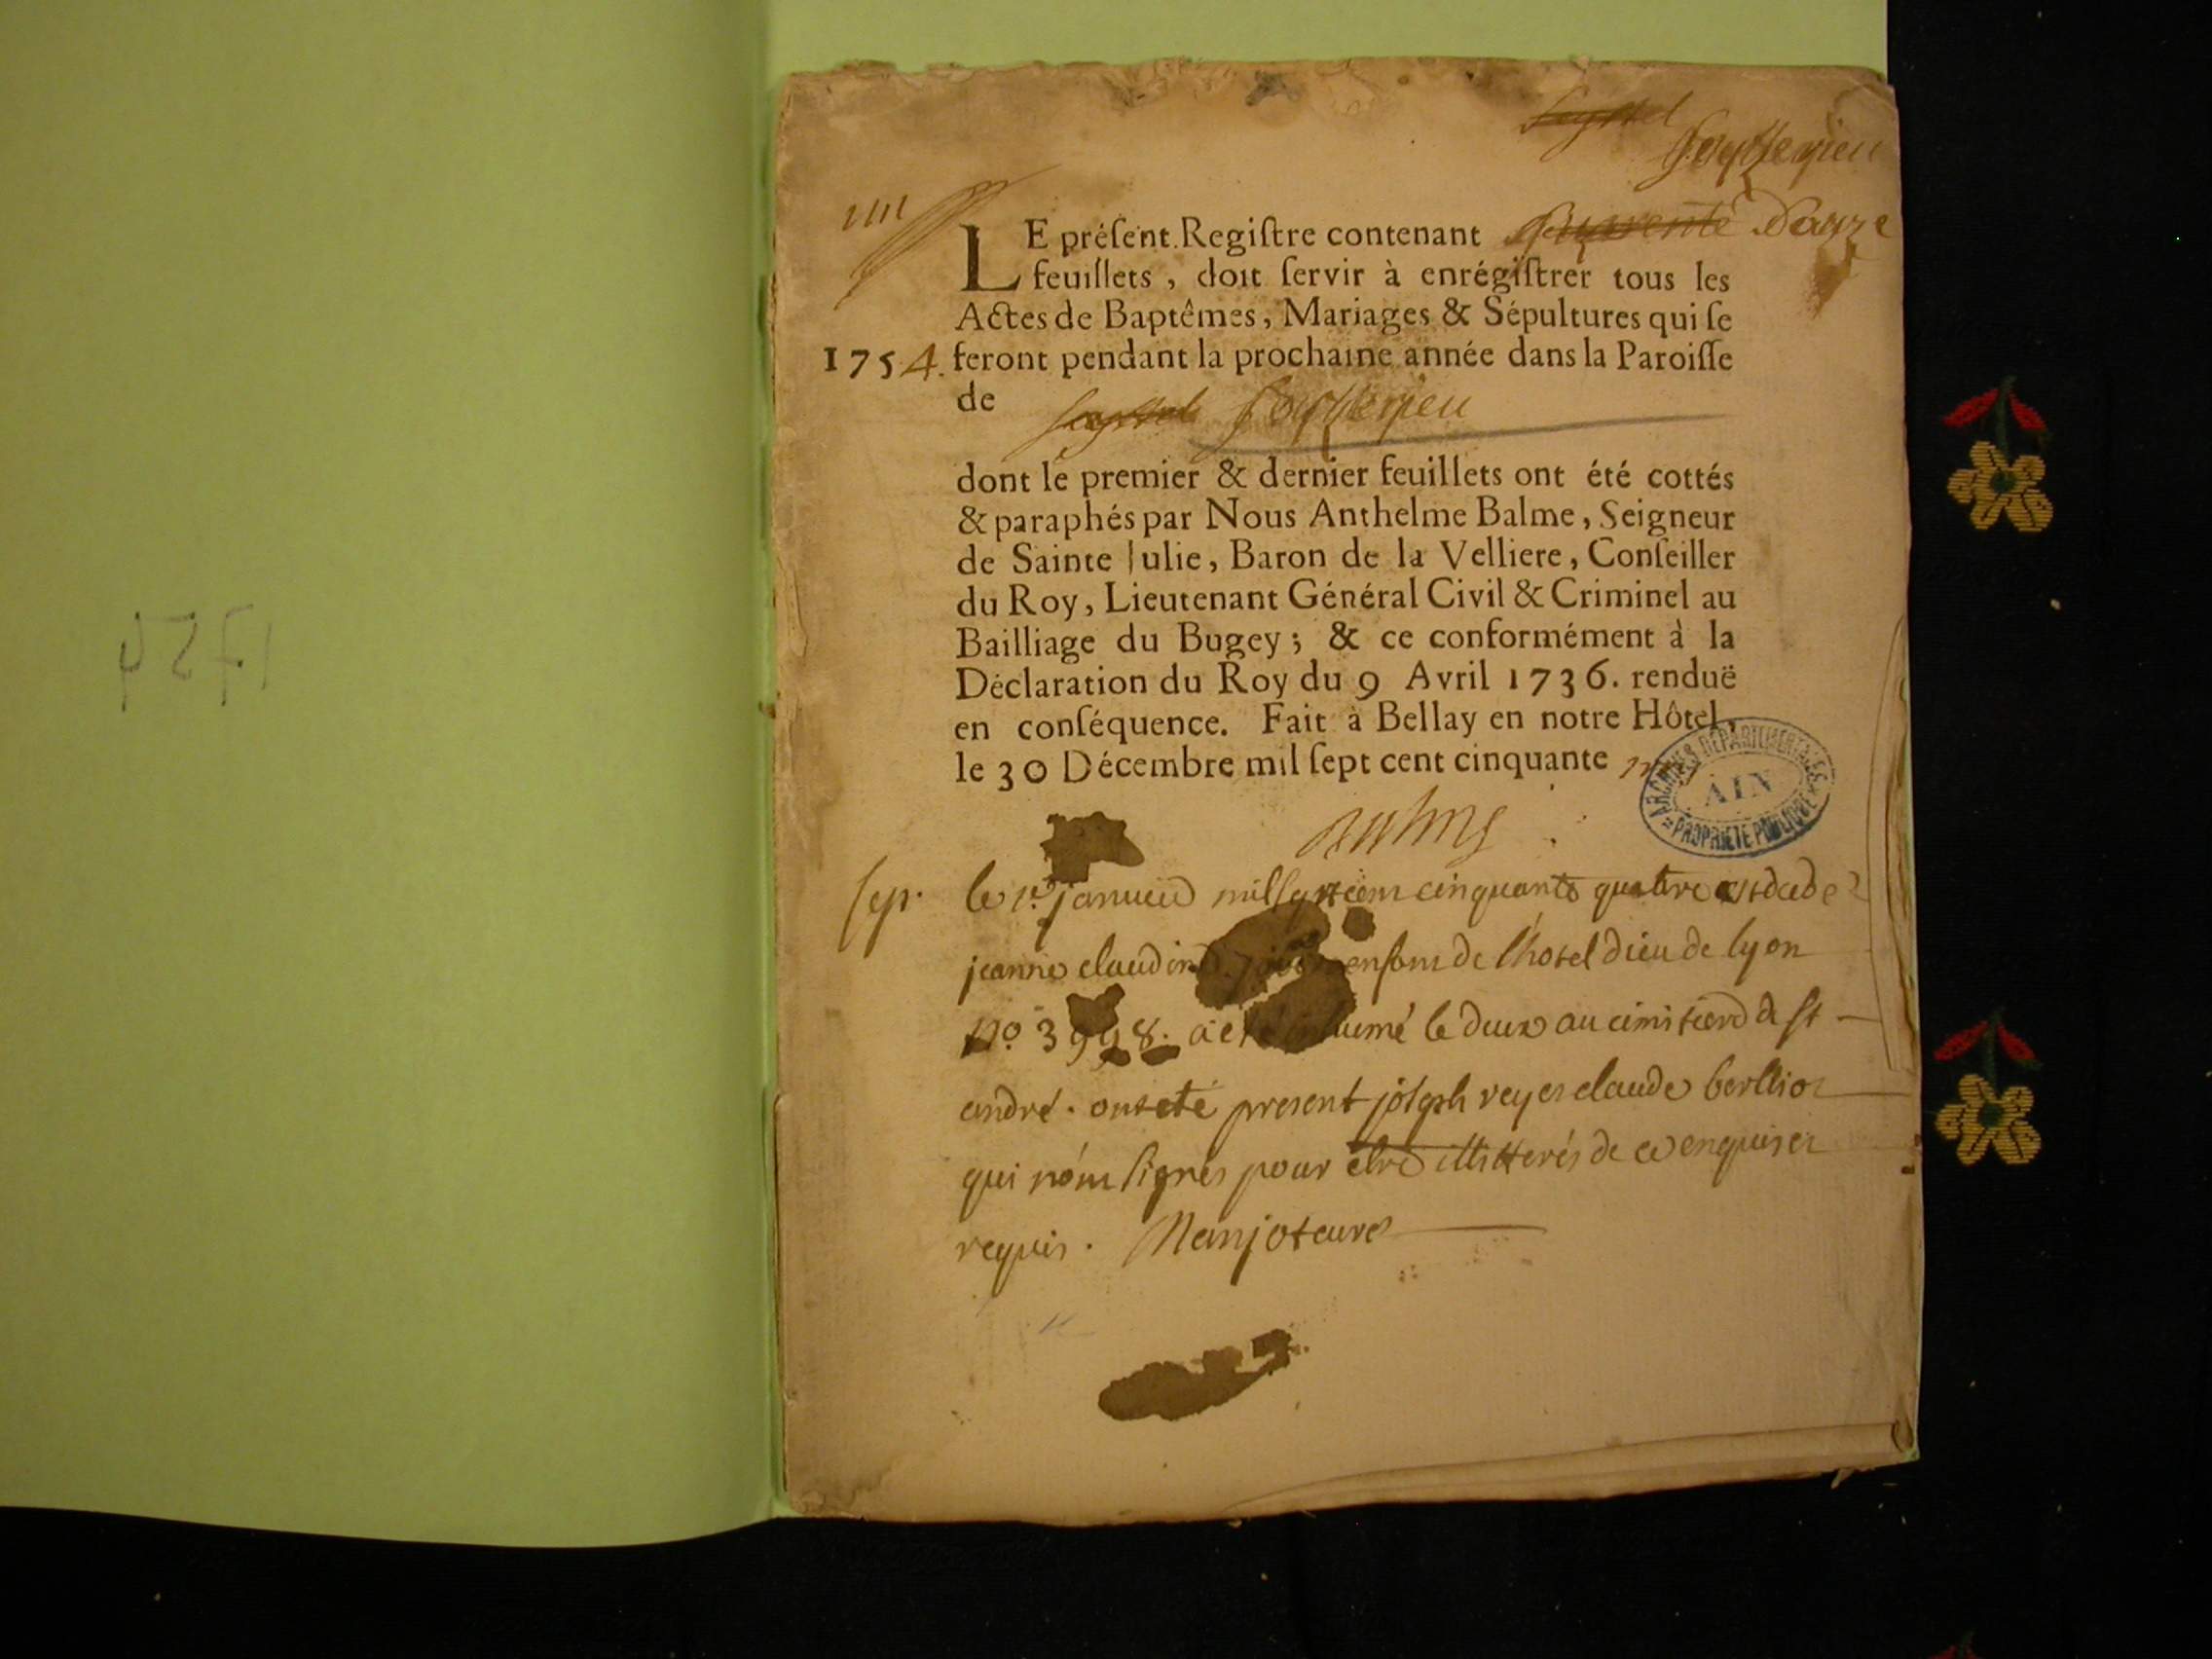 1754
Seyssel
LE préſent Regiſtre contenant quarente Douze
feuillets, doit ſervir à enrégiſtrer tous les
Actes de Baptêmes, Mariages & Sépultures qui ſe
1754. feront pendant la prochaine année dans la Paroiſſe
de Seyssel
dont le premier & dernier feuillets ont été cottés
& paraphés par Nous Anthelme Balme, Seigneur
de Sainte Julie, Baron de la Velliere, Conſeiller
du Roy, Lieutenant Général Civil & Criminel au
Bailliage du Bugey; & ce conformément à la
Déclaration du Roy du 9 Avril 1736. renduë
en conſéquence. Fait à Bellay en notre Hôtel,
le 30 Décembre mil ſept cent cinquante
ARCHIVES DÉPARTEMENTALES
AIN
PROPRIÉTÉ PUBLIQUE
Sep. le 1er janvier mil sept cent cinquante quatre est decedé
jeanne claudine enfant de l'hotel dieu de lyon
No. 3998. a eté inhumé le deux au cimitiere de st
andré. ont eté present joseph reyer claude berllioz
qui n'ont signés pour etre illitterés de ce enquis et
requis.